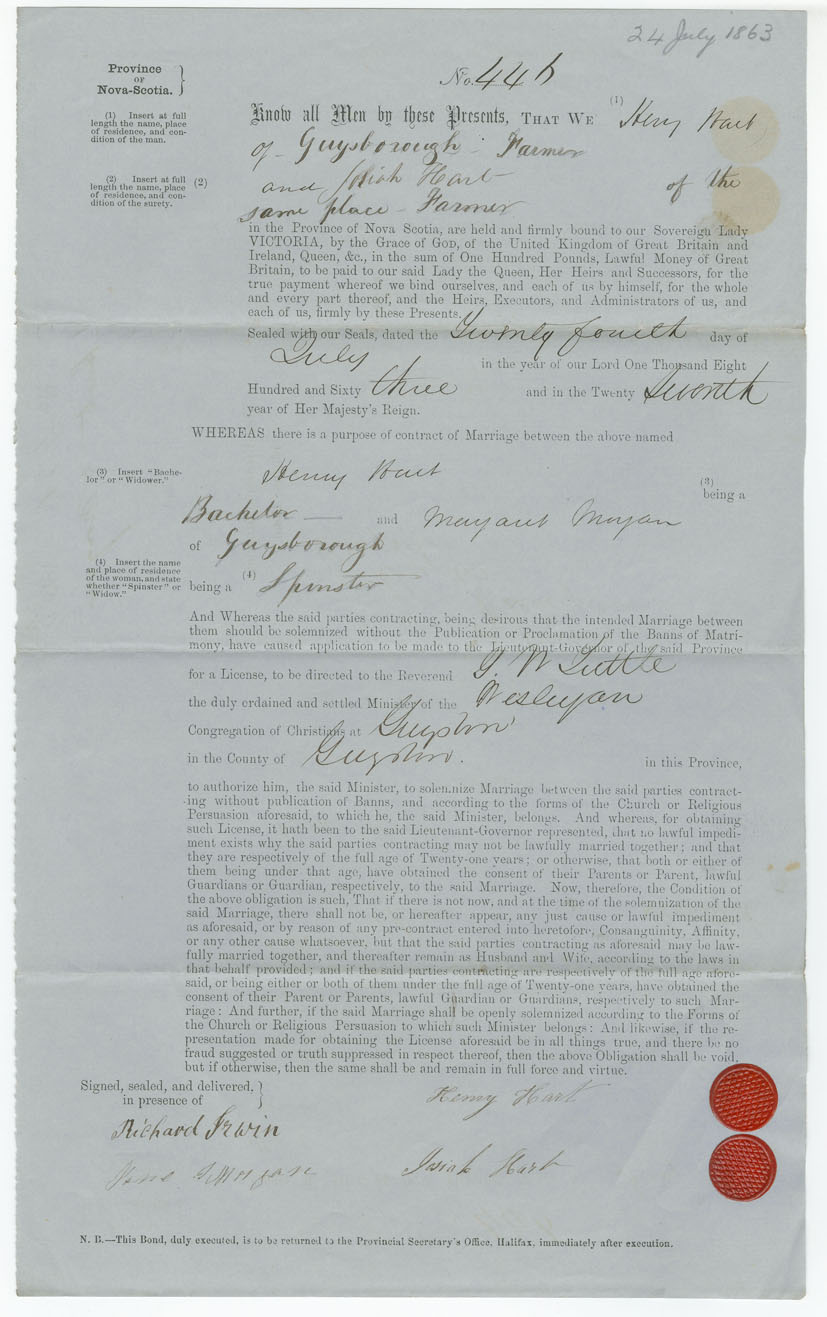 24 July 1863
Province
OF
Nova-Scotia.
No. 446
(1) Insert at full
length the name, place
of residence, and con-
dition of the man.
Know all Men by these Presents, THAT WE (1) Henry Hart
of Guysborough - Farmer
(2) Insert at full
length the name, place
of residence, and con-
dition of the surety.
(2) and Josiah Hart of the
same place - Farmer
in the Province of Nova Scotia, are held and firmly bound to our Sovereign Lady
VICTORIA, by the Grace of GOD, of the United Kingdom of Great Britain and
Ireland, Queen, &c., in the sum of One Hundred Pounds, Lawful Money of Great
Britain, to be paid to our said Lady the Queen, Her Heirs and Successors, for the
true payment whereof we bind ourselves, and each of us by himself, for the whole
and every part thereof, and the Heirs, Executors, and Administrators of us, and
each of us, firmly by these Presents.
Sealed with our Seals, dated the Twenty fourth day of
July in the year of our Lord One Thousand Eight
Hundred and Sixty three and in the Twenty Seventh
year of Her Majesty's Reign.
WHEREAS there is a purpose of contract of Marriage between the above named
(3) Insert "Bache-
lor" or "Widower."
Henry Hart
(3)
being a
Bachelor and Margaret Morgan
of Guysborough
(4) Insert the name
and place of residence
of the woman, and state
whether "Spinster" or
"Widow."
being a (4) Spinster
And Whereas the said parties contracting, being desirous that the intended Marriage between
them should be solemnized without the Publication or Proclamation of the Banns of Matri-
mony, have caused application to be made to the Lieutenant-Governor of the said Province
for a License, to be directed to the Reverend G. W Tuttle
the duly ordained and settled Minister of the Wesleyan
Congregation of Christians at Guysboro'
in the County of Guysboro. in this Province,
to authorize him, the said Minister, to solemnize Marriage between the said parties contract-
ing without publication of Banns, and according to the forms of the Church or Religious
Persuasion aforesaid, to which he, the said Minister, belongs. And whereas, for obtaining
such License, it hath been to the said Lieutenant-Governor represented, that no lawful impedi-
ment exists why the said parties contracting may not be lawfully married together; and that
they are respectively of the full age of Twenty-one years; or otherwise, that both or either of
them being under that age, have obtained the consent of their Parents or Parent, lawful
Guardians or Guardian, respectively, to the said Marriage. Now, therefore, the Condition of
the above obligation is such, That if there is not now, and at the time of the solemnization of the
said Marriage, there shall not be, or hereafter appear, any just cause or lawful impediment
as aforesaid, or by reason of any pre-contract entered into heretofore, Consanguinity, Affinity,
or any other cause whatsoever, but that the said parties contracting as aforesaid may be law-
fully married together, and thereafter remain as Husband and Wife, according to the laws in
that behalf provided; and if the said parties contracting are respectively of the full age afore-
said, or being either or both of them under the full age of Twenty-one years, have obtained the
consent of their Parent or Parents, lawful Guardian or Guardians, respectively to such Mar-
riage: And further, if the said Marriage shall be openly solemnized according to the Forms of
the Church or Religious Persuasion to which such Minister belongs: And likewise, if the re-
presentation made for obtaining the License aforesaid be in all things true, and there be no
fraud suggested or truth suppressed in respect thereof, then the above Obligation shall be void,
but if otherwise, then the same shall be and remain in full force and virtue.
Signed, sealed, and delivered,
in presence of
Henry Hart
Richard Irwin
Josiah Hart
N. B.—This Bond, duly executed, is to be returned to the Provincial Secretary's Office, Halifax, immediately after execution.